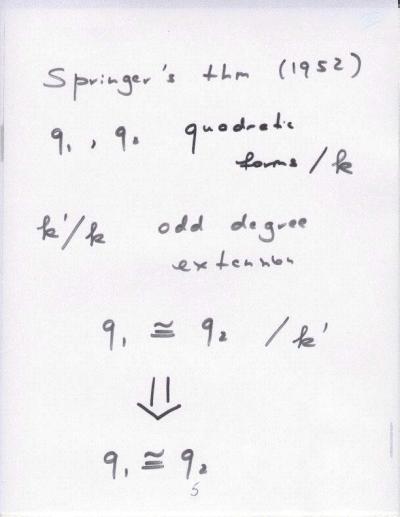 Springer's thm (1952)
q₁, q₂ quadratic
forms / k
k'/k odd degree
extension
q₁ ≅ q₂ / k'
⇓
q₁ ≅ q₂
5